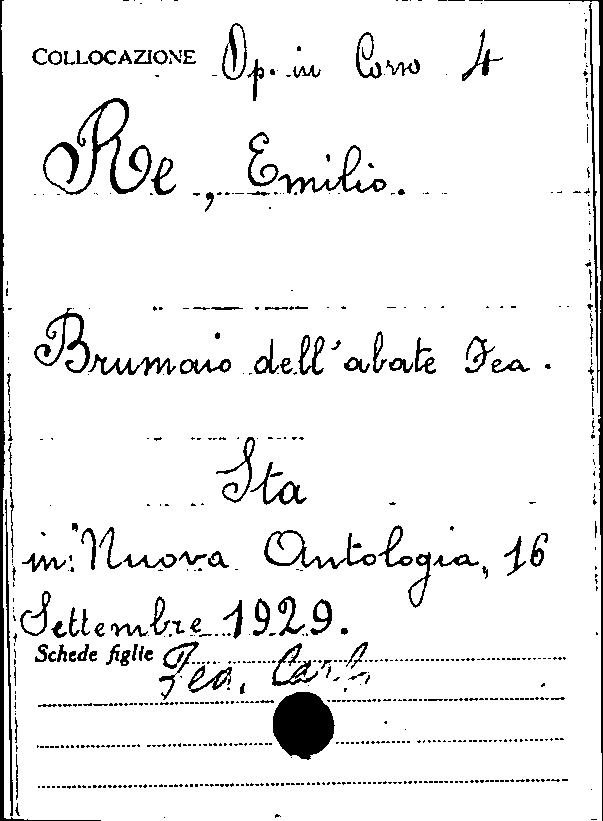 COLLOCAZIONE Op. in Corso 4
Re, Emilio.
Brumaio dell'abate Fea.
Sta
in: "Nuova Antologia, 16
Settembre 1929.
Schede figlie Fea, Carlo